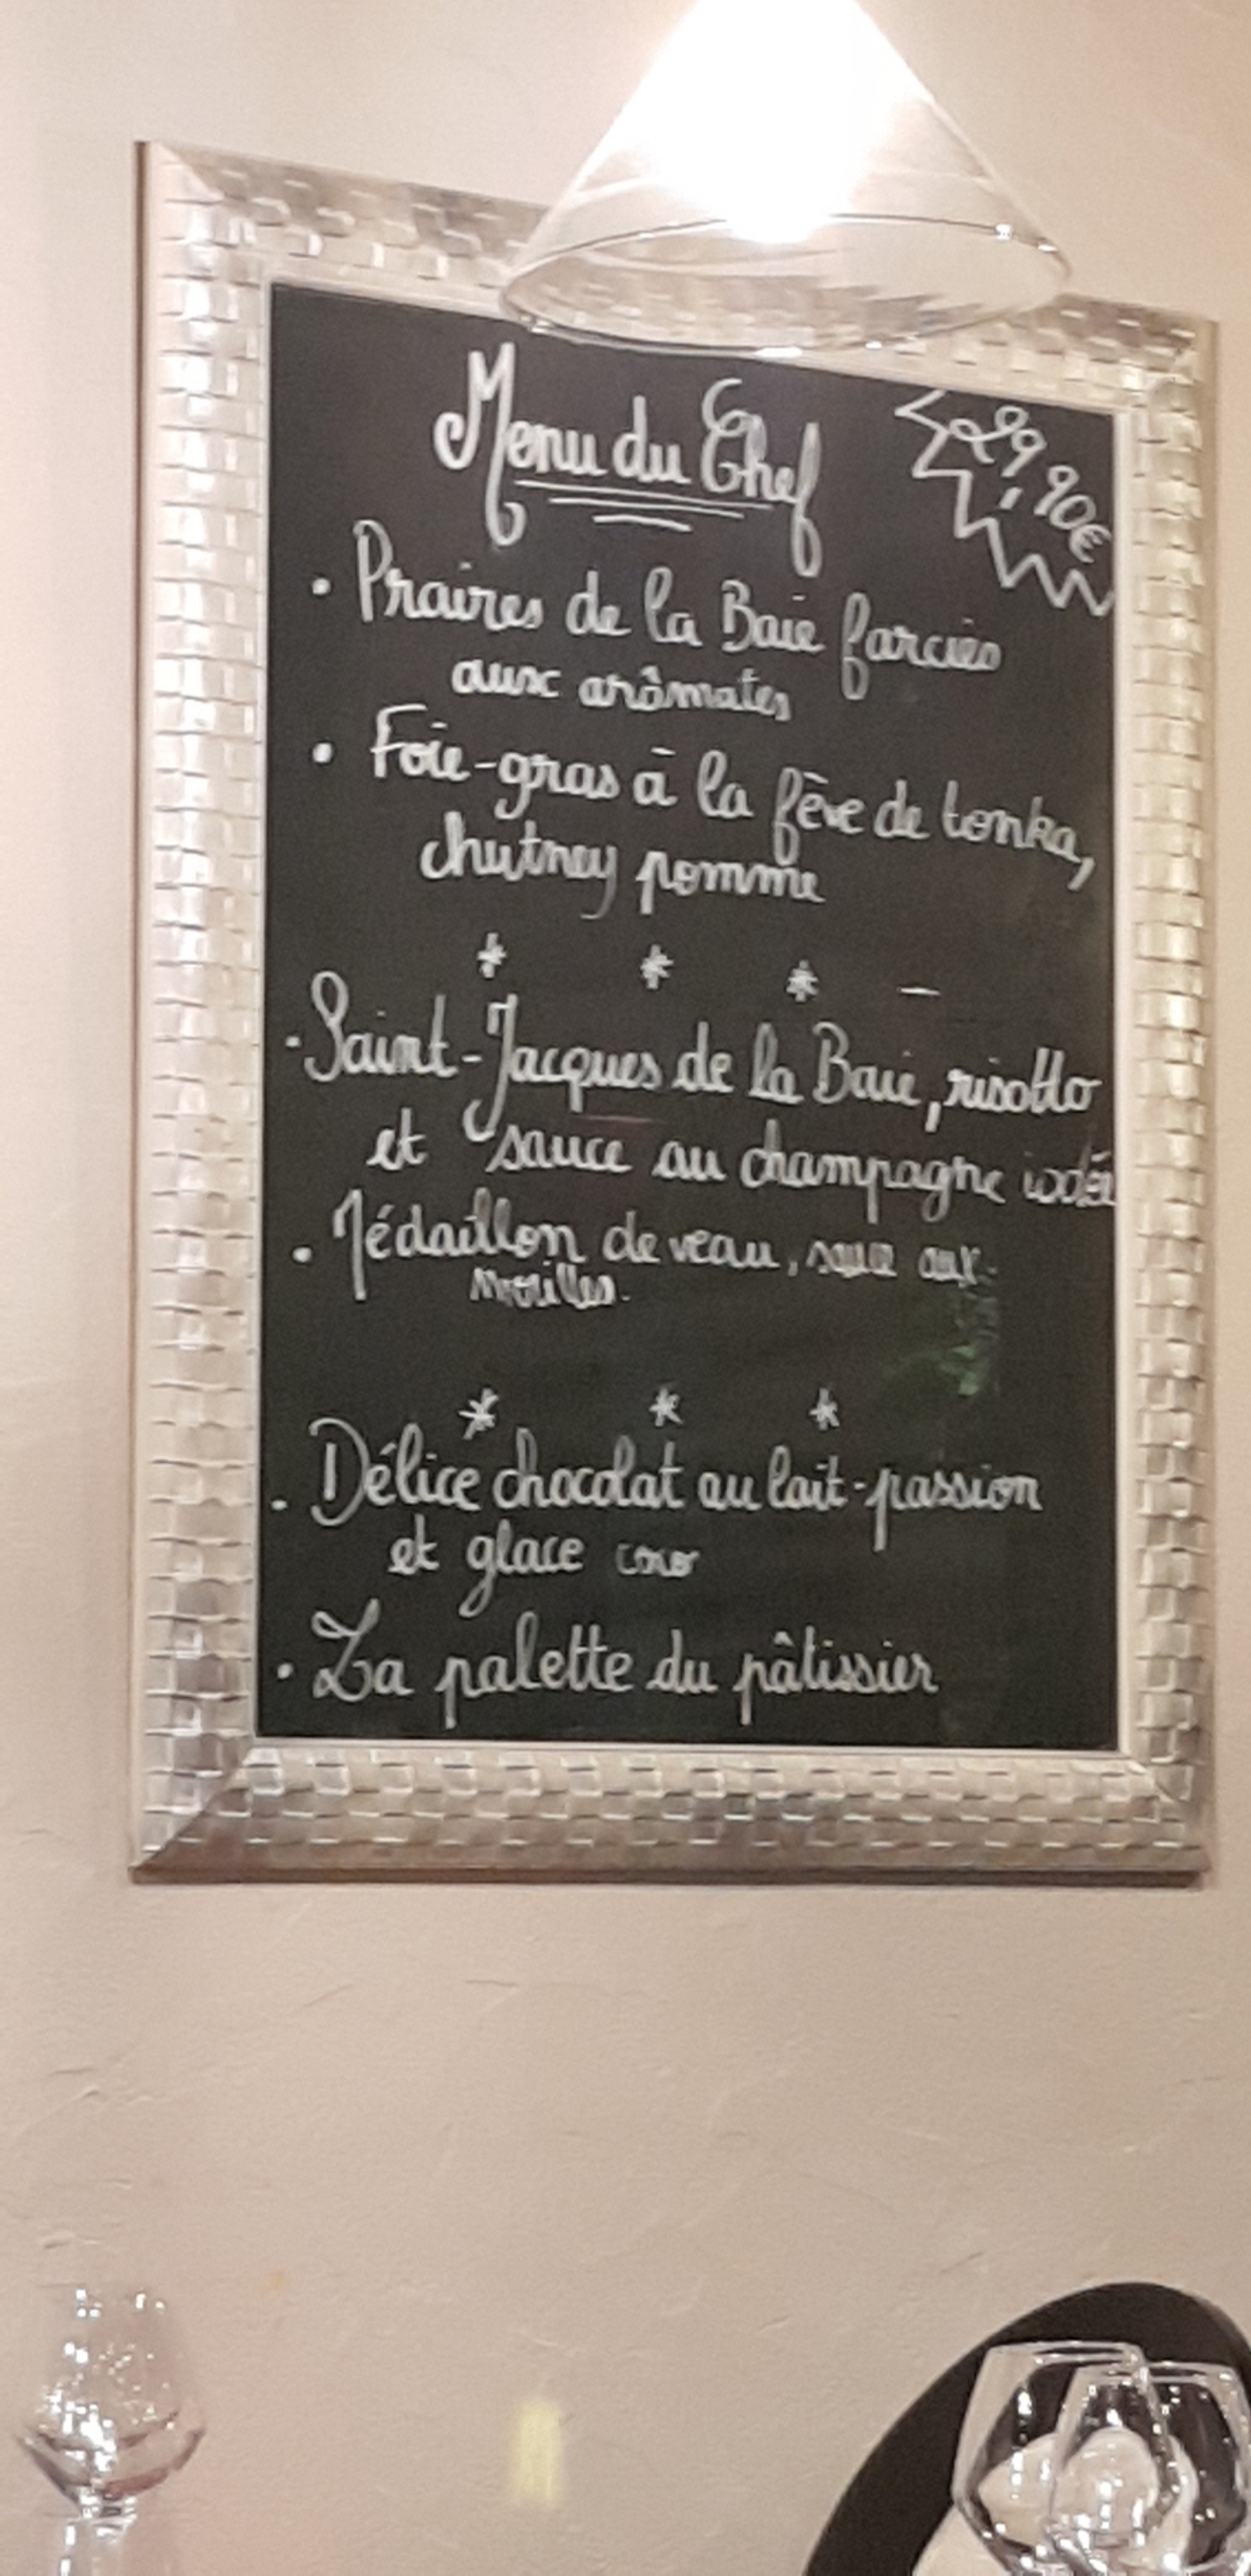 Menu du Chef
29,90€
• Praires de la Baie farcies
aux arômates
• Foie-gras à la fève de tonka,
chutney pomme
* * * -
• Saint-Jacques de la Baie, risotto
et sauce au champagne iodée
• Médaillon de veau, sauce aux
morilles.
* * *
• Délice chocolat au lait-passion
et glace coco
• La palette du pâtissier